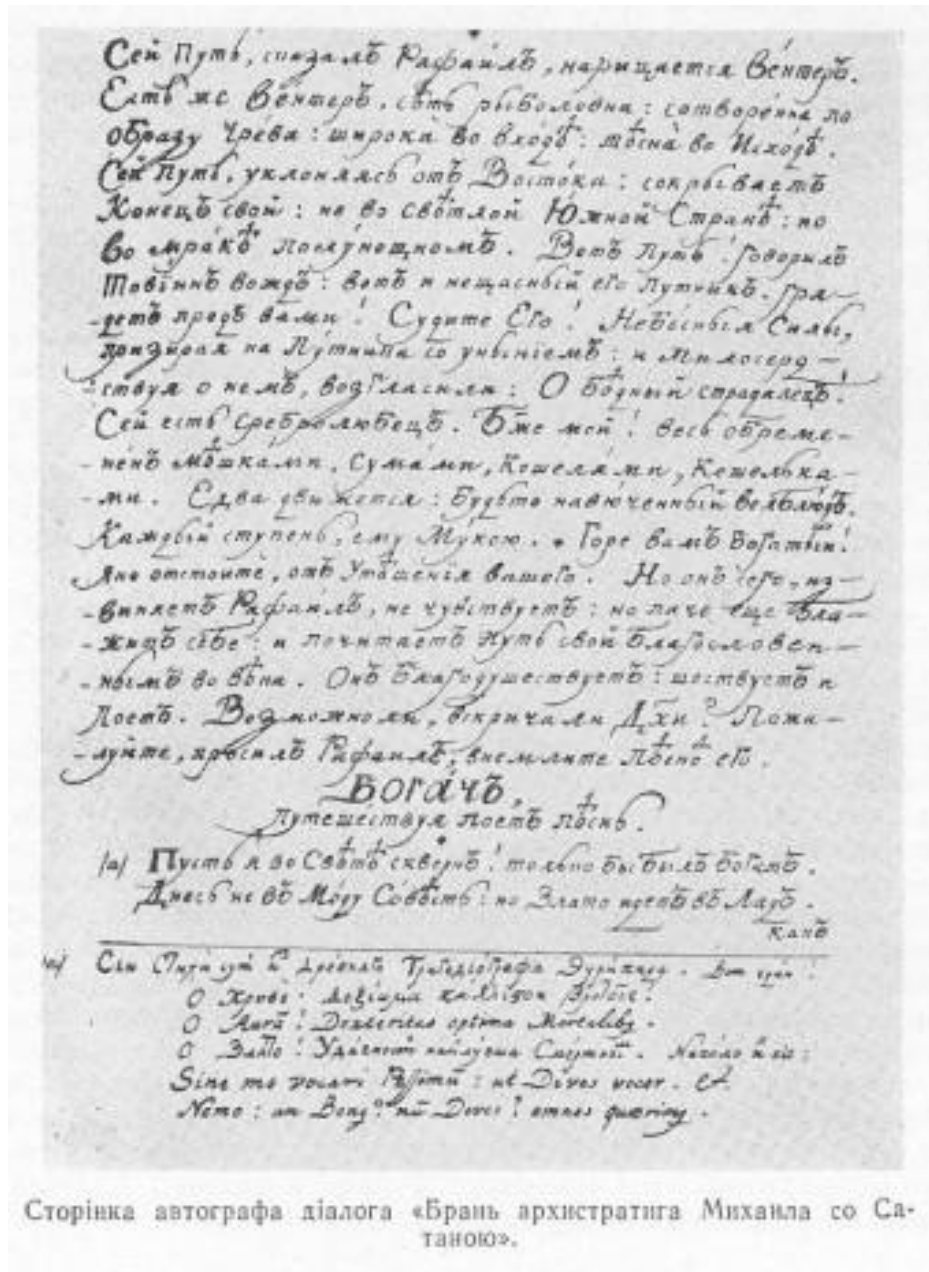 Сей Путь, сказалъ Рафаилъ, нарицается Вéнтеръ.
Есть же Вéнтеръ, сѣть рыболовна: сотворéнна по
образу Чрéва: широкá во вхóдѣ: тѣснá во Исхóдѣ.
Сей Путь, уклоняясь отъ Востóка: сокрываетъ
Конецъ свой: не во свѣтлой Южной Странѣ: но
во мрáкѣ полýнощномъ. Вотъ Путь! говорилъ
Товíинъ вождъ: вотъ и нещасный его Путникъ. гря-
-детъ предъ вами! Судите Его! Небесныя Силы,
призирая на Пýтника со унынíемъ: и Милосерд-
-ствуя о немъ, возгласили: О бѣдный страдалецъ!
Сей есть Сребролюбецъ. Бже мой! весь обреме-
-нéнъ Мѣшкáми, Сумáми, Кошелями, Кошелька-
-ми. Едва движется: будьто навюченный велблюдъ.
Каждый ступень, ему Мýкою. * Горе вамъ Богатыи!
Яко отстоите, отъ Утѣшенíя вашего. Но онъ сего, из-
-виняетъ Рафаилъ, не чувствуетъ: но паче еще Бла-
-житъ себе: и почитаетъ Путь свой Благословен-
-нымъ во вѣки. Онъ Благодушествуетъ: шествуетъ и
Поетъ. Возможноли, вскричали Дхи? Пожа-
-луйте, просилъ Рафаилъ, внемлите Пѣсно его.
БОГÁЧЪ,
Путешествуя поетъ пѣснь.
/а/ Пусть я во Свѣтѣ скверн! только бы былъ богатъ.
Днесь не въ Мóду Сóвѣсть: но Злато идетъ въ Ладъ.
Какъ
/а/ Сіи Стихи суть древняго Трагедіографа Эурипида.
О Хρυσὲ·
О Aurū! Dexteritas optima Mortalibꝫ.
О Злато!
Sine me vocari Pessimū: ut Dives vocer. &.
Nemo: an Bonꝫ? nū Dives? omnes quærimꝫ.
Сторінка автографа діалога «Брань архистратига Михаила со Са-
таною».